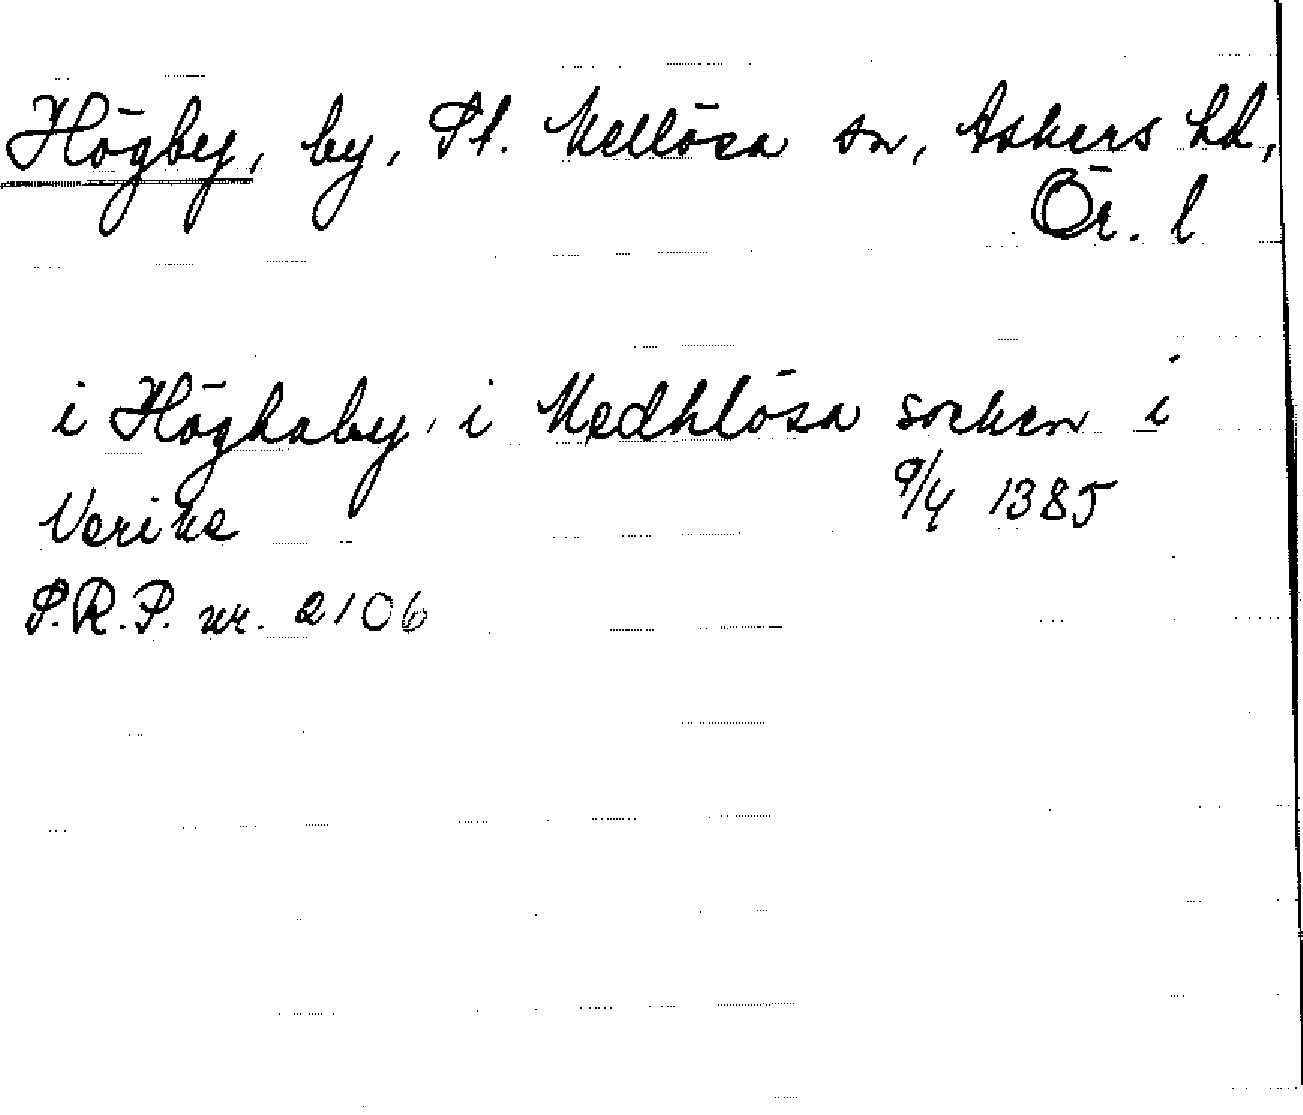 Högby, by, St. Mellösa sn, Askers hd,
Ör. l
i Höghaby i Medhlösa socken i
Verike 9/4 1385
P.R.P. nr. 2106